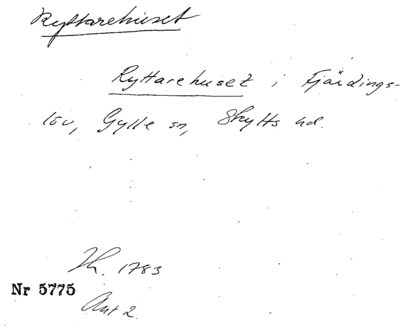 Ryttarehuset
Ryttarehuset i Fjärdings-
löv, Gylle sn, Skytts hd.
Th. 1783
Nr 5775
Ant 2